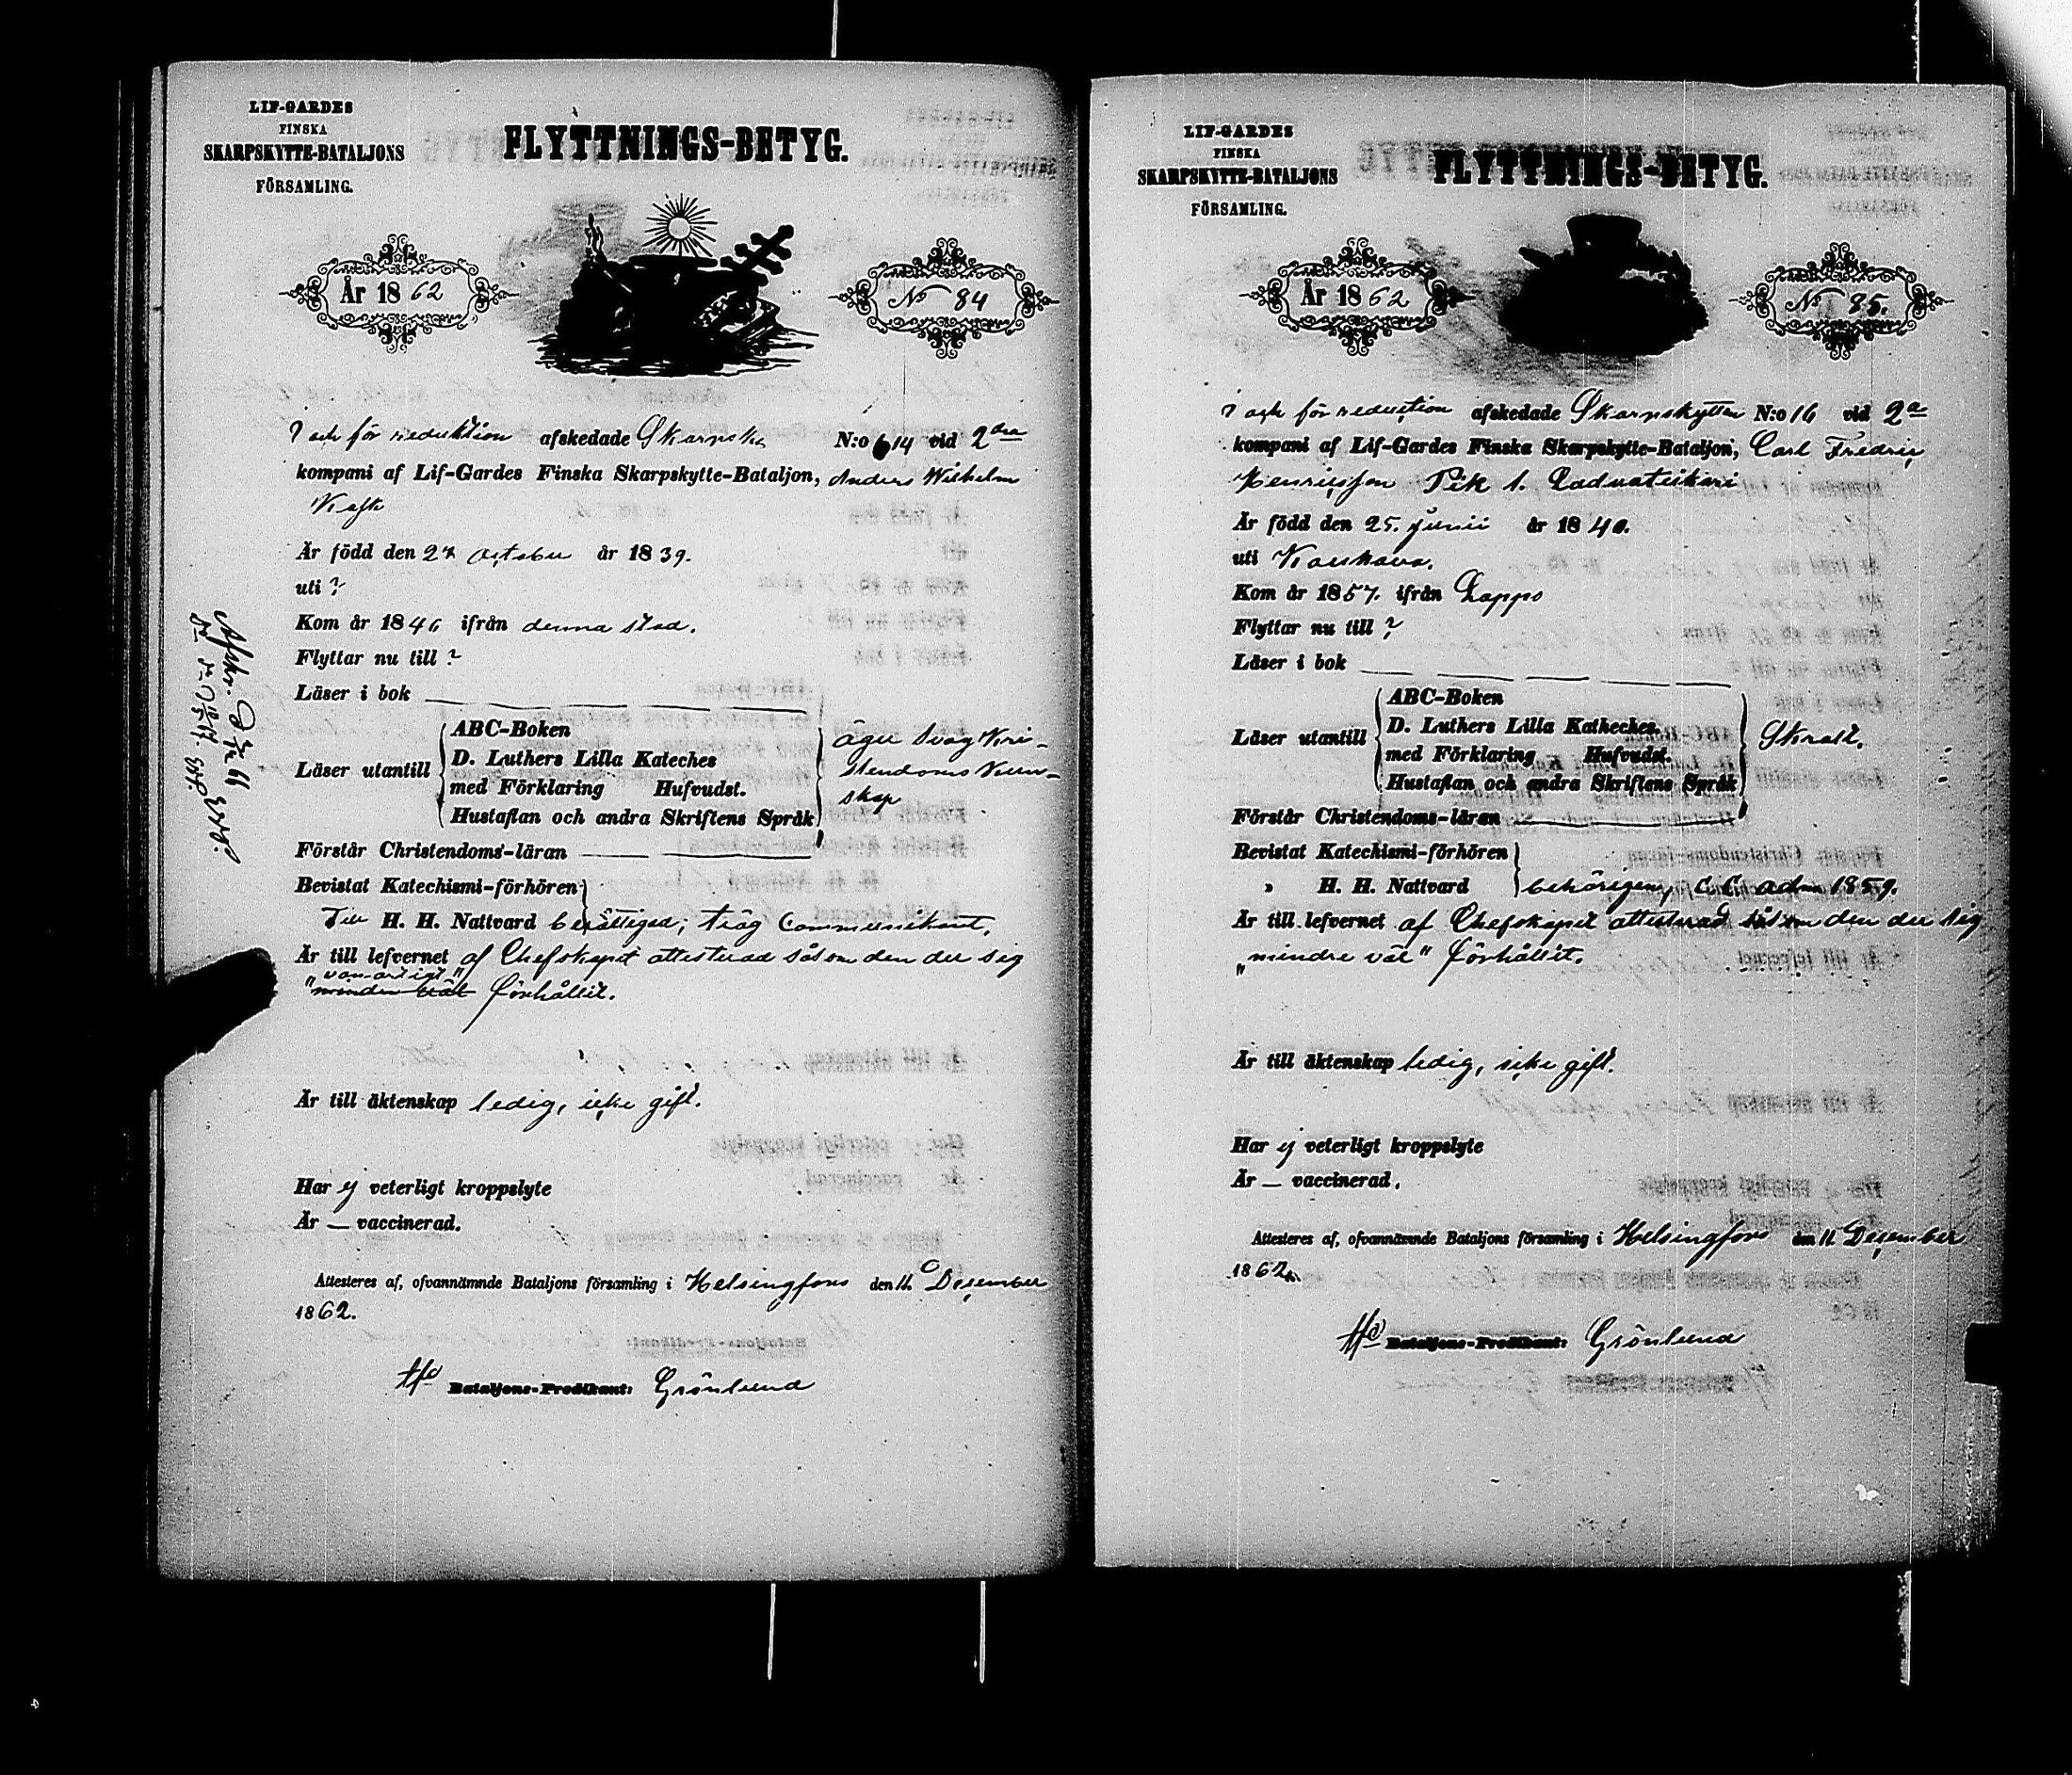 LIF-GARDES
FINSKA
SKARPSKYTTE-BATALJONS
FÖRSAMLING.
FLYTTNINGS-BETYG.
År 1862
No 84
I och för reduktion afskedade Skarpsk N:o 14 vid 2dra
kompani af Lif-Gardes Finska Skarpskytte-Bataljon, Anders Wilhelm
Är född den 27 October år 1839.
uti ?
Kom år 1846 ifrån denna stad.
Flyttar nu till ?
Läser i bok
Läser utantill
ABC-Boken
D. Luthers Lilla Kateches
med Förklaring Hufvudst.
Hustaflan och andra Skriftens Språk
äger svag Kri-
stendoms Kun-
skap
Förstår Christendoms-läran
Bevistat Katechismi-förhören
Till H. H. Nattvard berättigad; trög Communikant.
Är till lefvernet af Chefskapet attesterad såsom den der sig
"vanartigt"
"mindre väl förhållit.
Är till äktenskap ledig, icke gift.
Har ej veterligt kroppslyte
Är — vaccinerad.
Attesteres af, ofvannämnde Bataljons församling i Helsingfors den 11. December
1862.
Bataljons-Predikant: Grönlund
LIF-GARDES
FINSKA
SKARPSKYTTE-BATALJONS
FÖRSAMLING.
FLYTTNINGS-BETYG.
År 1862
No 85.
I och för reduction afskedade Skarpskytten N:o 16 vid 2a
kompani af Lif-Gardes Finska Skarpskytte-Bataljon, Carl Fredric
Henricsson Pik l.
Är född den 25. Junii år 1840.
uti Kauhava.
Kom år 1857. ifrån Lappo
Flyttar nu till ?
Läser i bok
Läser utantill
ABC-Boken
D. Luthers Lilla Katheches.
med Förklaring Hufvudst.
Hustaflan och andra Skriftens Språk
Skralt.
Förstår Christendoms-läran
Bevistat Katechismi-förhören
» H. H. Nattvard behörigen, adm 1859.
Är till lefvernet af Chefskapet attesterad såsom den der sig
"mindre väl" förhållit.
Är till äktenskap ledig, icke gift.
Har ej veterligt kroppslyte
Är — vaccinerad.
Attesteres af, ofvannämnde Bataljons församling i Helsingfors den 11. December
1862.
Bataljons-Predikant: Grönlund